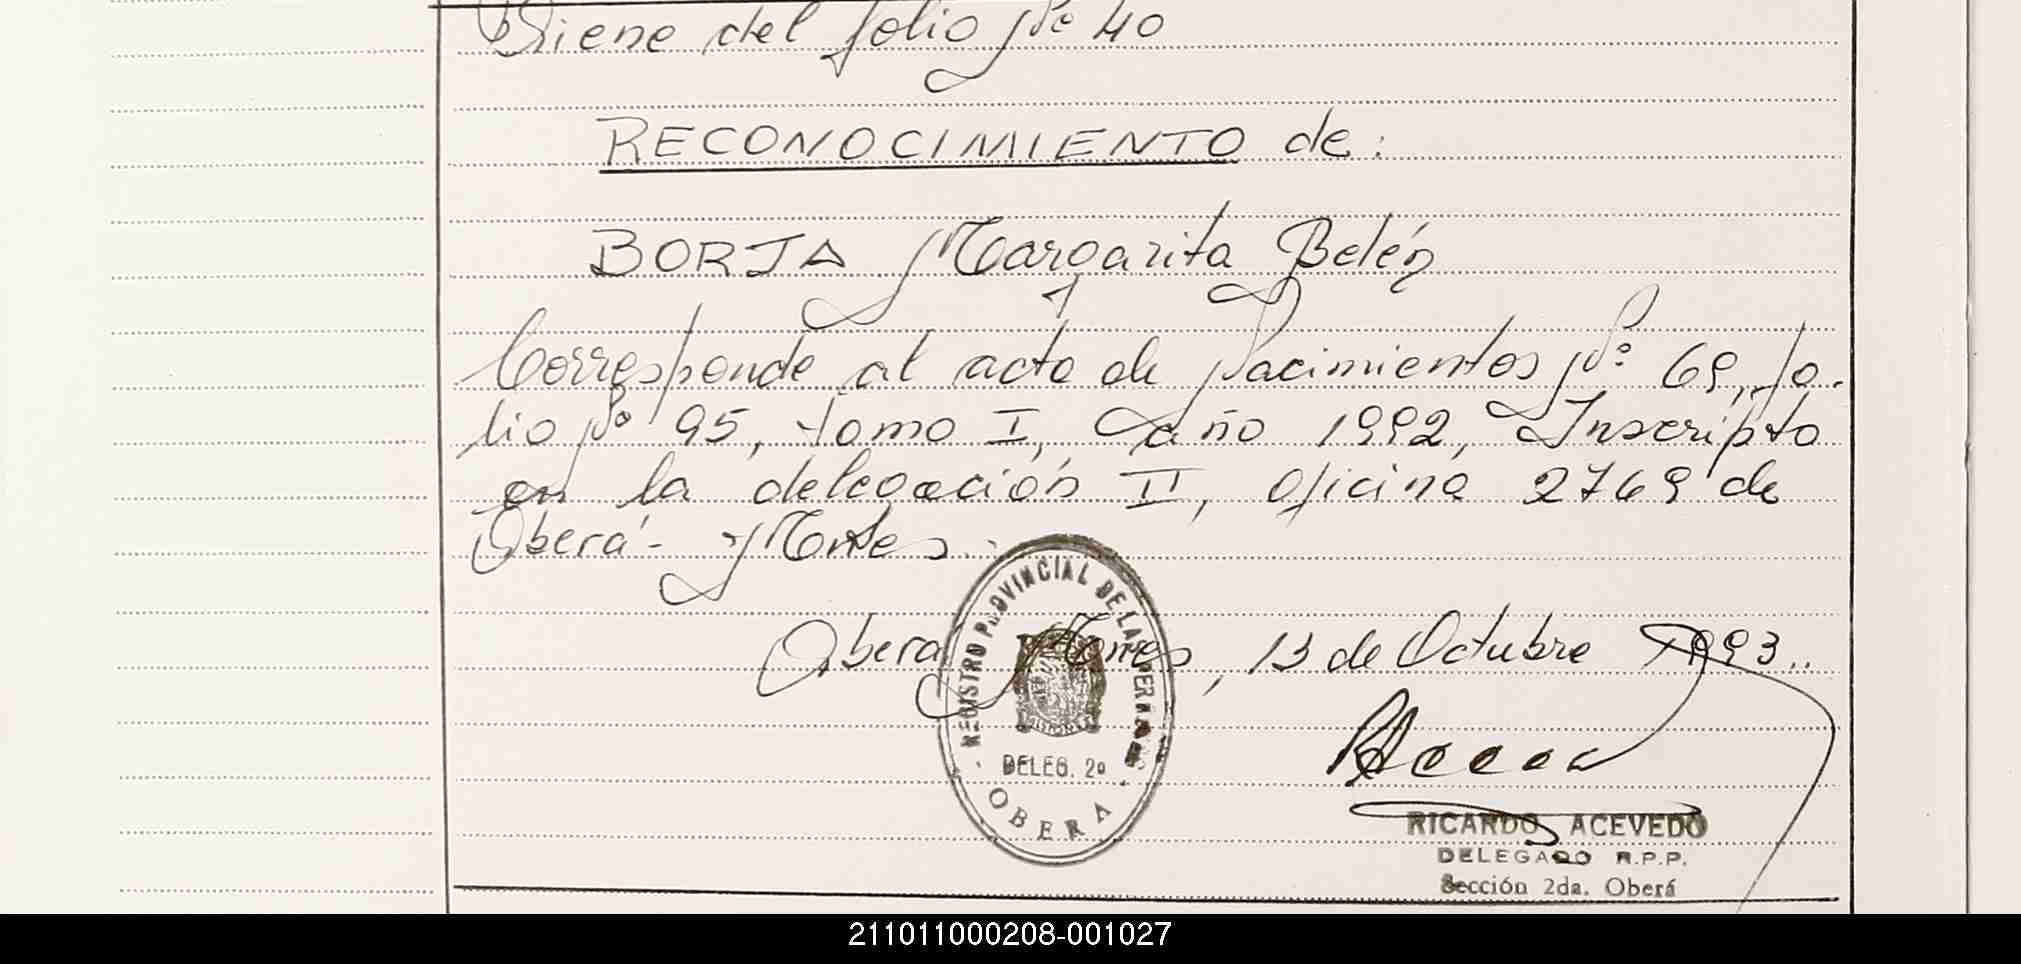 Viene del folio Nº 40
RECONOCIMIENTO de:
BORJA Margarita Belén
Corresponde al acta de Nacimientos Nº 69, fo-
lio Nº 95, tomo I, año 1992, Inscripto
en la delegación II, oficina 2769 de
Oberá - Mnes.
Oberá Mnes, 13 de Octubre 1993..
REGISTRO PROVINCIAL DE LAS PERSONAS
DELEG. 2a
OBERA
RICARDO ACEVEDO
DELEGADO R.P.P.
Sección 2da. Oberá
211011000208-001027